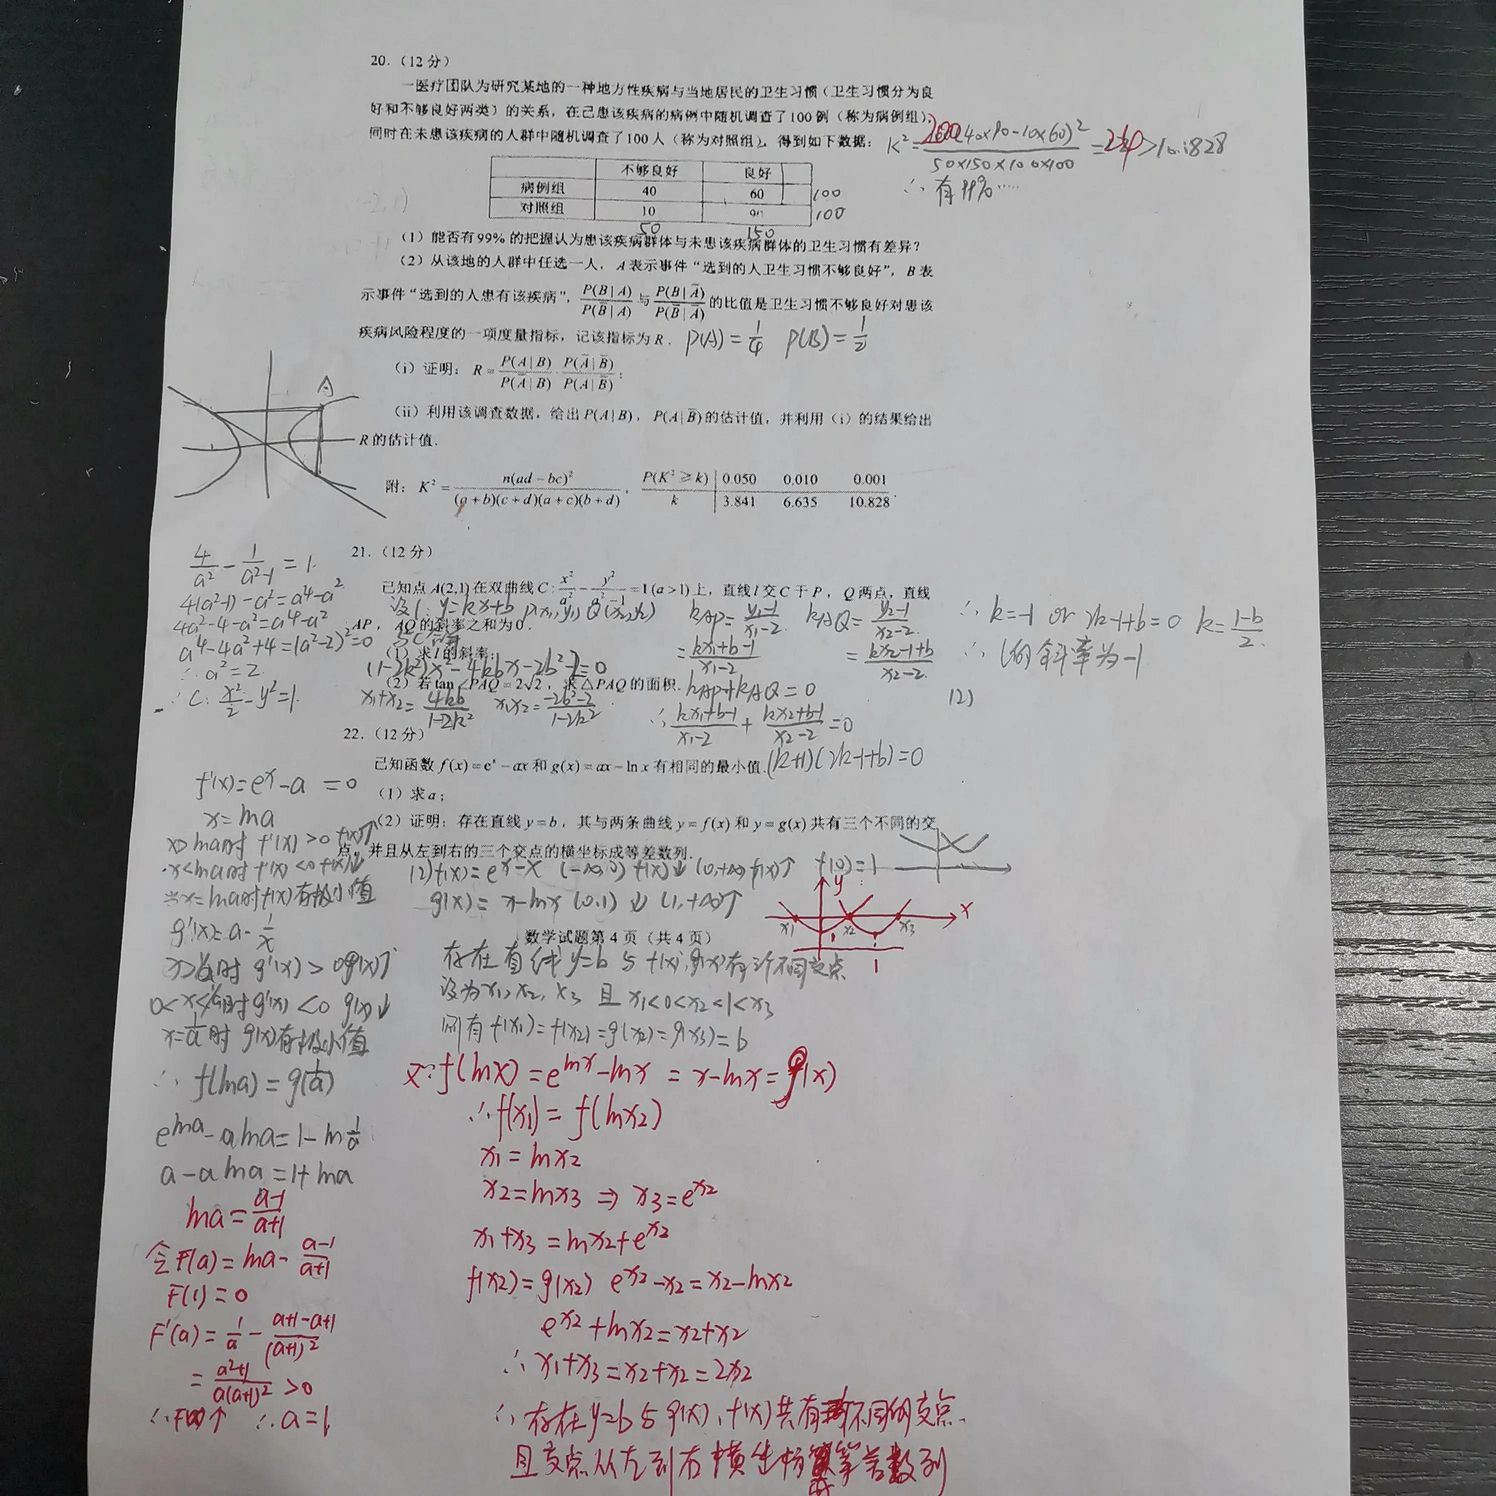 20.（12 分）
一医疗团队为研究某地的一种地方性疾病与当地居民的卫生习惯（卫生习惯分为良
好和不够良好两类）的关系，在已患该疾病的病例中随机调查了100例（称为病例组），
同时在未患该疾病的人群中随机调查了100人（称为对照组），得到如下数据：
K²=200(40×90-10×60)²/50×150×100×100=24>10.828
∴有99%……
不够良好 良好
病例组 40 60 100
对照组 10 90 100
50 150
（1）能否有99%的把握认为患该疾病群体与未患该疾病群体的卫生习惯有差异？
（2）从该地的人群中任选一人，A表示事件“选到的人卫生习惯不够良好”，B表
示事件“选到的人患有该疾病”，P(B|A)/P(B̄|A)与P(B|Ā)/P(B̄|Ā)的比值是卫生习惯不够良好对患该
疾病风险程度的一项度量指标，记该指标为R．
P(A)=1/4 P(B)=1/2
（i）证明：R=P(A|B)/P(Ā|B)·P(Ā|B̄)/P(A|B̄)；
（ii）利用该调查数据，给出P(A|B)，P(A|B̄)的估计值，并利用（i）的结果给出
R的估计值．
附：K²=n(ad-bc)²/(a+b)(c+d)(a+c)(b+d)，
P(K²≥k) 0.050 0.010 0.001
k 3.841 6.635 10.828
A
21.（12 分）
已知点A(2,1)在双曲线C:x²/a²-y²/a²-1=1(a>1)上，直线l交C于P，Q两点，直线
AP，AQ的斜率之和为0．
（1）求l的斜率；
（2）若tan∠PAQ=2√2，求△PAQ的面积．
4/a²-1/a²-1=1
4(a²-1)-a²=a⁴-a²
4a²-4-a²=a⁴-a²
a⁴-4a²+4=(a²-2)²=0
∴a²=2
∴C:x²/2-y²=1
设l:y=kx+b P(x₁,y₁) Q(x₂,y₂)
(1-2k²)x²-4kbx-2b²-2=0
x₁+x₂=4kb/1-2k² x₁x₂=-2b²-2/1-2k²
kAP=y₁-1/x₁-2 kAQ=y₂-1/x₂-2
=kx₁+b-1/x₁-2 =kx₂-1+b/x₂-2
kAP+kAQ=0
∴kx₁+b-1/x₁-2+kx₂+b-1/x₂-2=0
(k+1)(2k-1+b)=0
∴k=-1 or 2k-1+b=0 k=1-b/2
∴l的斜率为-1
(2)
22.（12 分）
已知函数f(x)=eˣ-ax和g(x)=ax-lnx有相同的最小值．
（1）求a；
（2）证明：存在直线y=b，其与两条曲线y=f(x)和y=g(x)共有三个不同的交
点，并且从左到右的三个交点的横坐标成等差数列．
f'(x)=eˣ-a=0
x=lna
x>lna时 f'(x)>0 f(x)↑
x<lna时 f'(x)<0 f(x)↓
当x=lna时f(x)有极小值
g'(x)=a-1/x
x>1/a时 g'(x)>0 g(x)↑
0<x<1/a时 g'(x)<0 g(x)↓
x=1/a时 g(x)有极小值
∴f(lna)=g(1/a)
e^lna-alna=1-ln1/a
a-alna=1+lna
lna=a-1/a+1
令F(a)=lna-a-1/a+1
F(1)=0
F'(a)=1/a-a+1-a+1/(a+1)²
=a²+1/a(a+1)²>0
∴F(x)↑ ∴a=1
(2)f(x)=eˣ-x (-∞,0) f(x)↓ (0,+∞)f(x)↑ f(0)=1
g(x)=x-lnx (0,1)↓ (1,+∞)↑
y
x
x₁ x₂ x₃
1
数学试题第4页（共4页）
存在直线y=b与f(x),g(x)有三个不同交点
设为x₁,x₂,x₃ 且 x₁<0<x₂<1<x₃
则有f(x₁)=f(x₂)=g(x₂)=g(x₃)=b
又∵f(lnx)=e^lnx-lnx=x-lnx=g(x)
∴f(x₁)=f(lnx₂)
x₁=lnx₂
x₂=lnx₃⇒x₃=e^x₂
x₁+x₃=lnx₂+e^x₂
f(x₂)=g(x₂) e^x₂-x₂=x₂-lnx₂
e^x₂+lnx₂=x₂+x₂
∴x₁+x₃=x₂+x₂=2x₂
∴存在y=b与g(x),f(x)共有不同的交点.
且交点从左到右横坐标等差数列